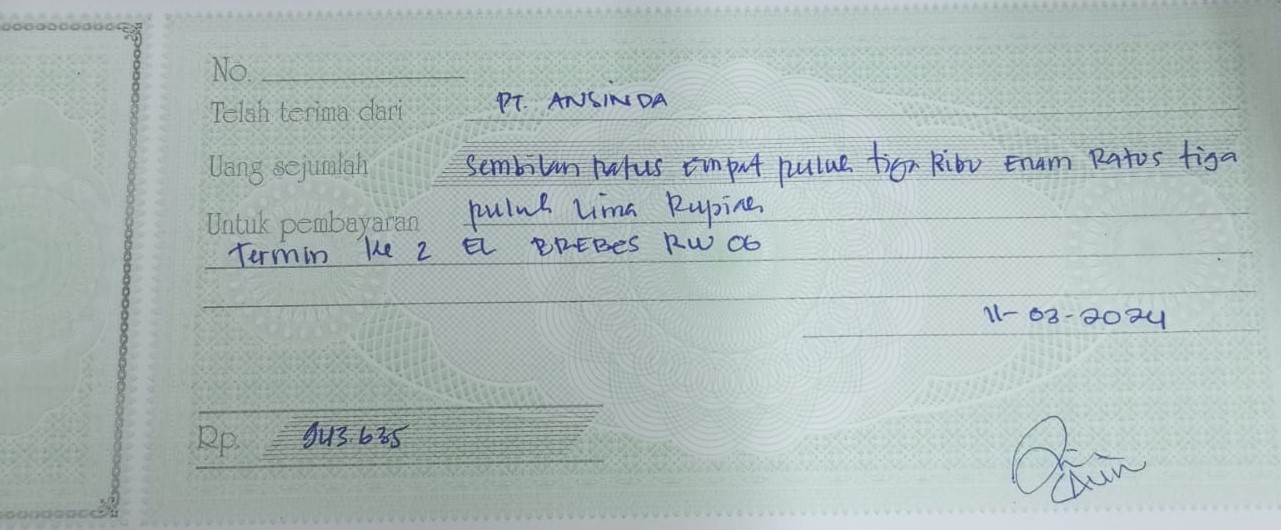 No.
Telah terima dari PT. ANSINDA
Uang sejumlah Sembilan Ratus Empat puluh tiga Ribu Enam Ratus tiga
puluh Lima Rupiah
Untuk pembayaran
Termin ke 2 EL BREBES RW 06
11-03-2024
Rp. 943.635